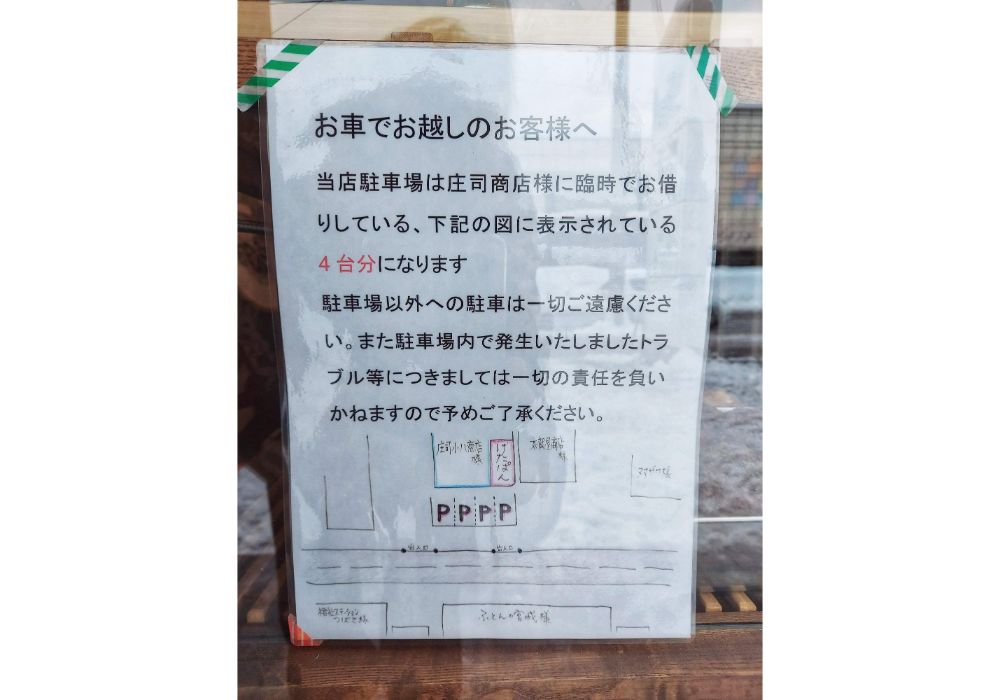 お車でお越しのお客様へ
当店駐車場は庄司商店様に臨時でお借
りしている、下記の図に表示されている
4台分になります
駐車場以外への駐車は一切ご遠慮くださ
い。また駐車場内で発生いたしましたトラ
ブル等につきましては一切の責任を負い
かねますので予めご了承ください。
庄司小八商店様
げたぽん
太郎屋商店様
P P P P
出入口
出入口
ステーション
つばさ様
ふとんの宮成様